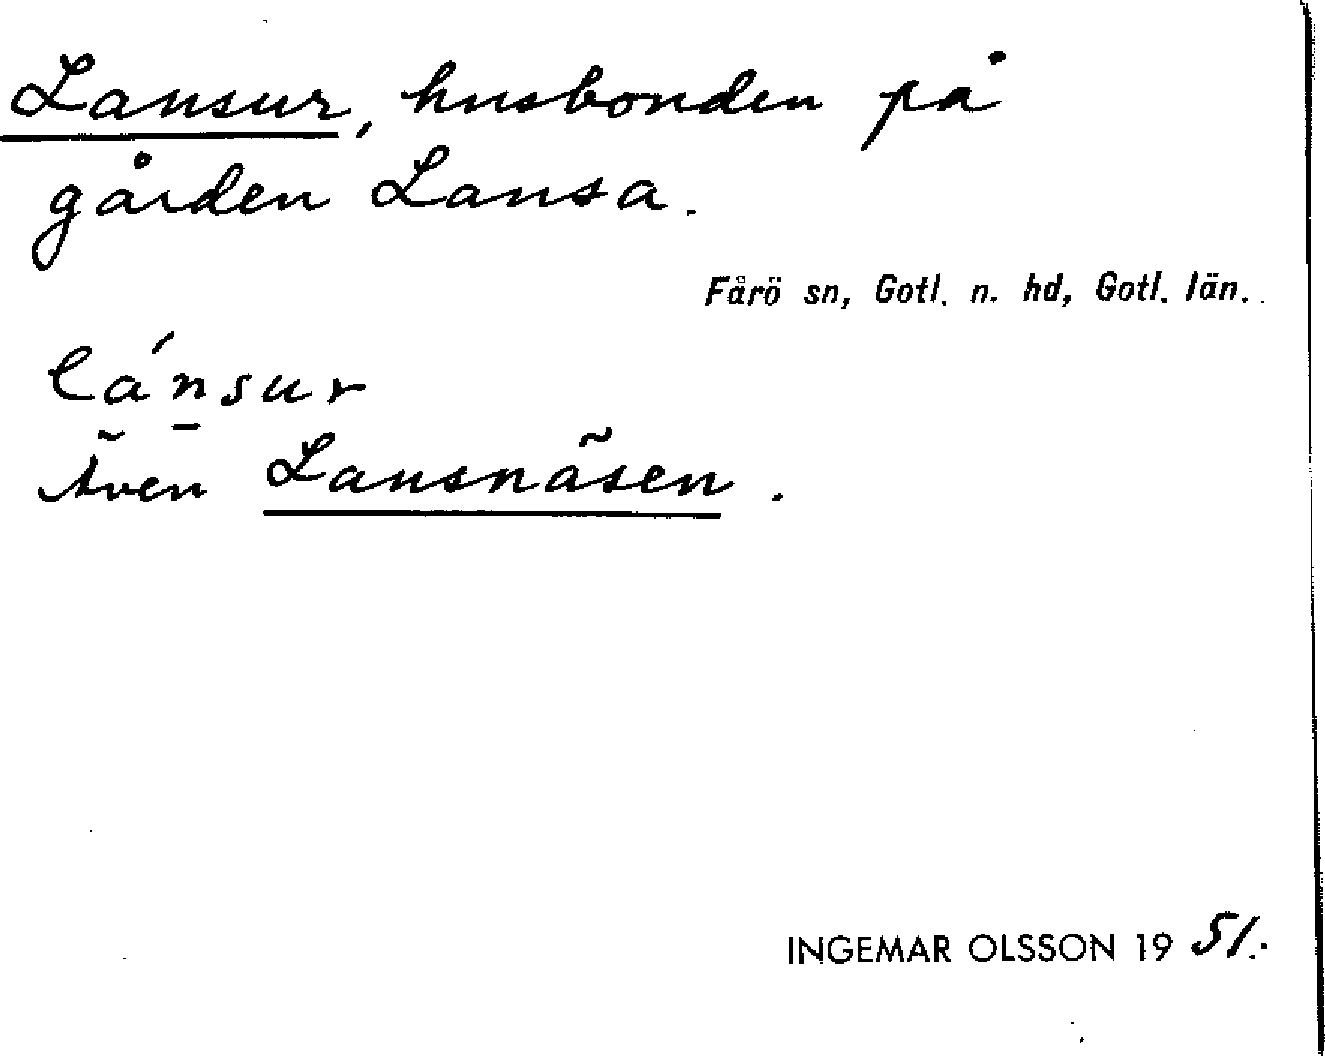 Lansur, husbonden på
gården Lansa.
Fårö sn, Gotl. n. hd, Gotl. län.
lánsur
Även Lansnäsen.
INGEMAR OLSSON 19 51.